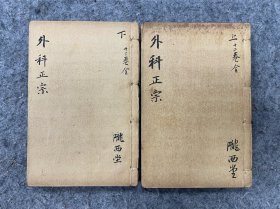 上十二卷全
外科正宗
隴西堂
下十二卷全
外科正宗
隴西堂